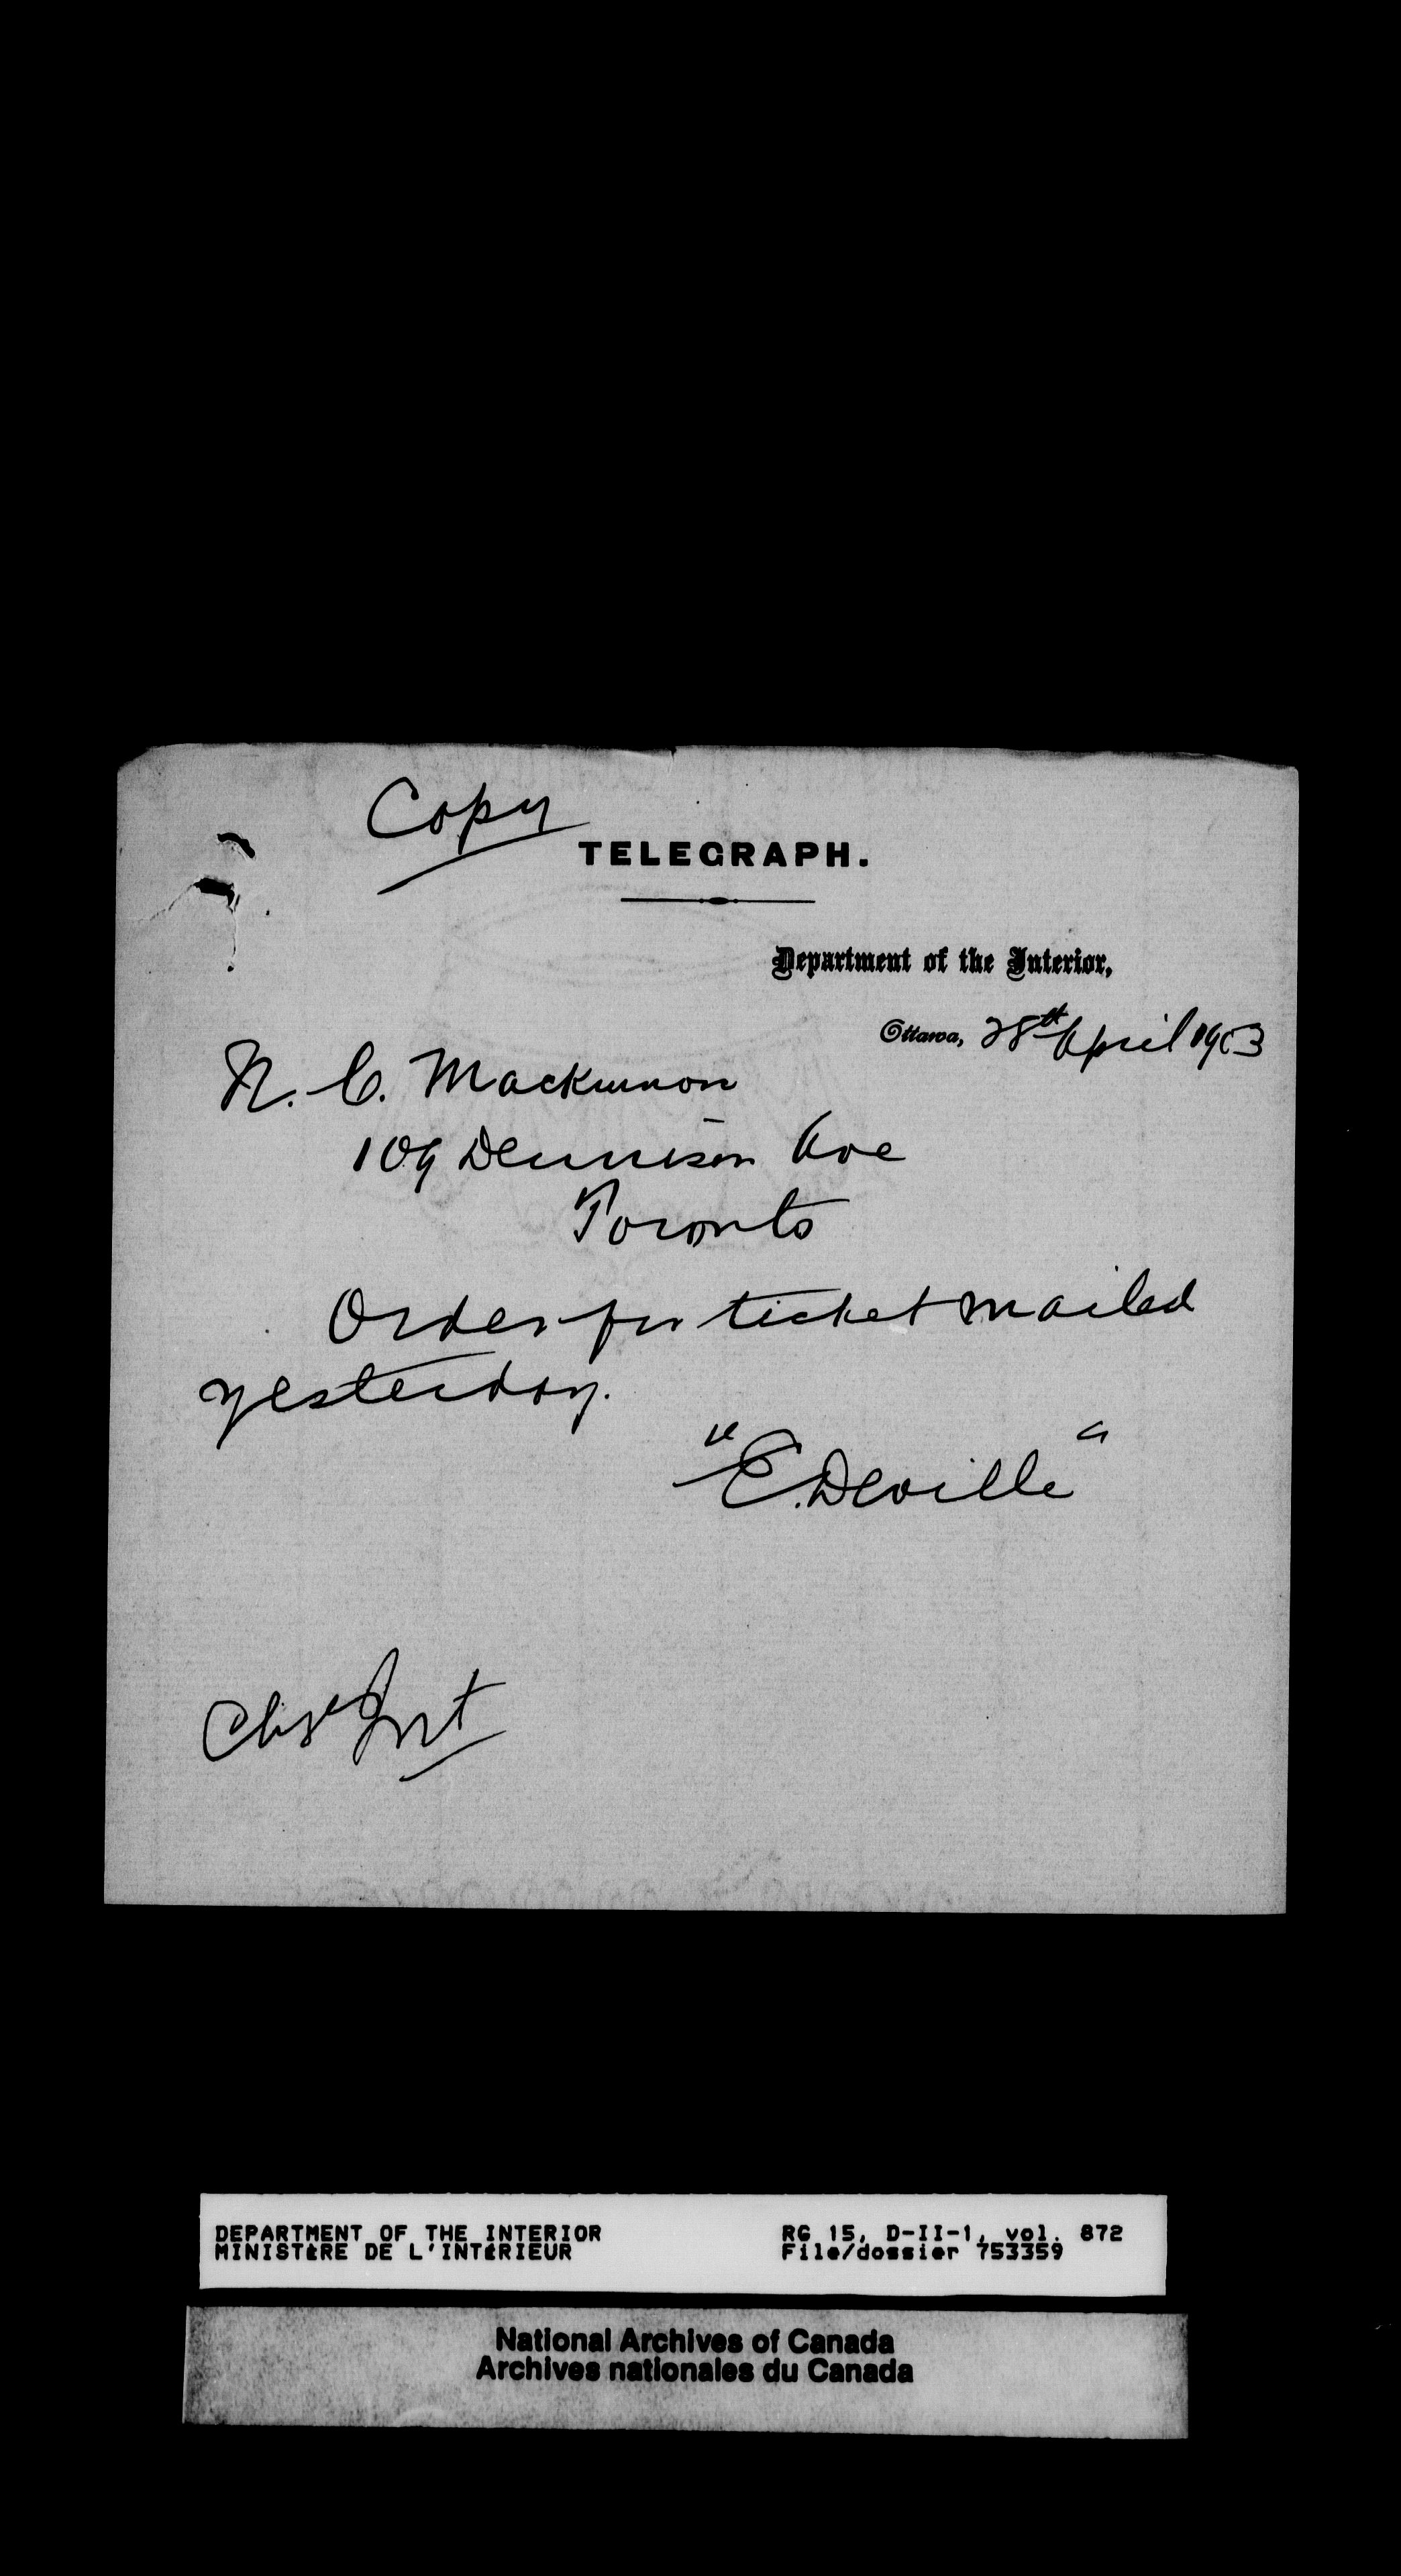 Copy
TELEGRAPH.
Department of the Interior,
Ottawa, 28th April 1903
N. C. Mackinnon
109 Dennison Ave
Toronto
Order for ticket mailed
yesterday.
"E. Deville"
Chge Int
DEPARTMENT OF THE INTERIOR
MINISTÈRE DE L'INTÉRIEUR
RG 15, D-II-1, vol. 872
File/dossier 753359
National Archives of Canada
Archives nationales du Canada